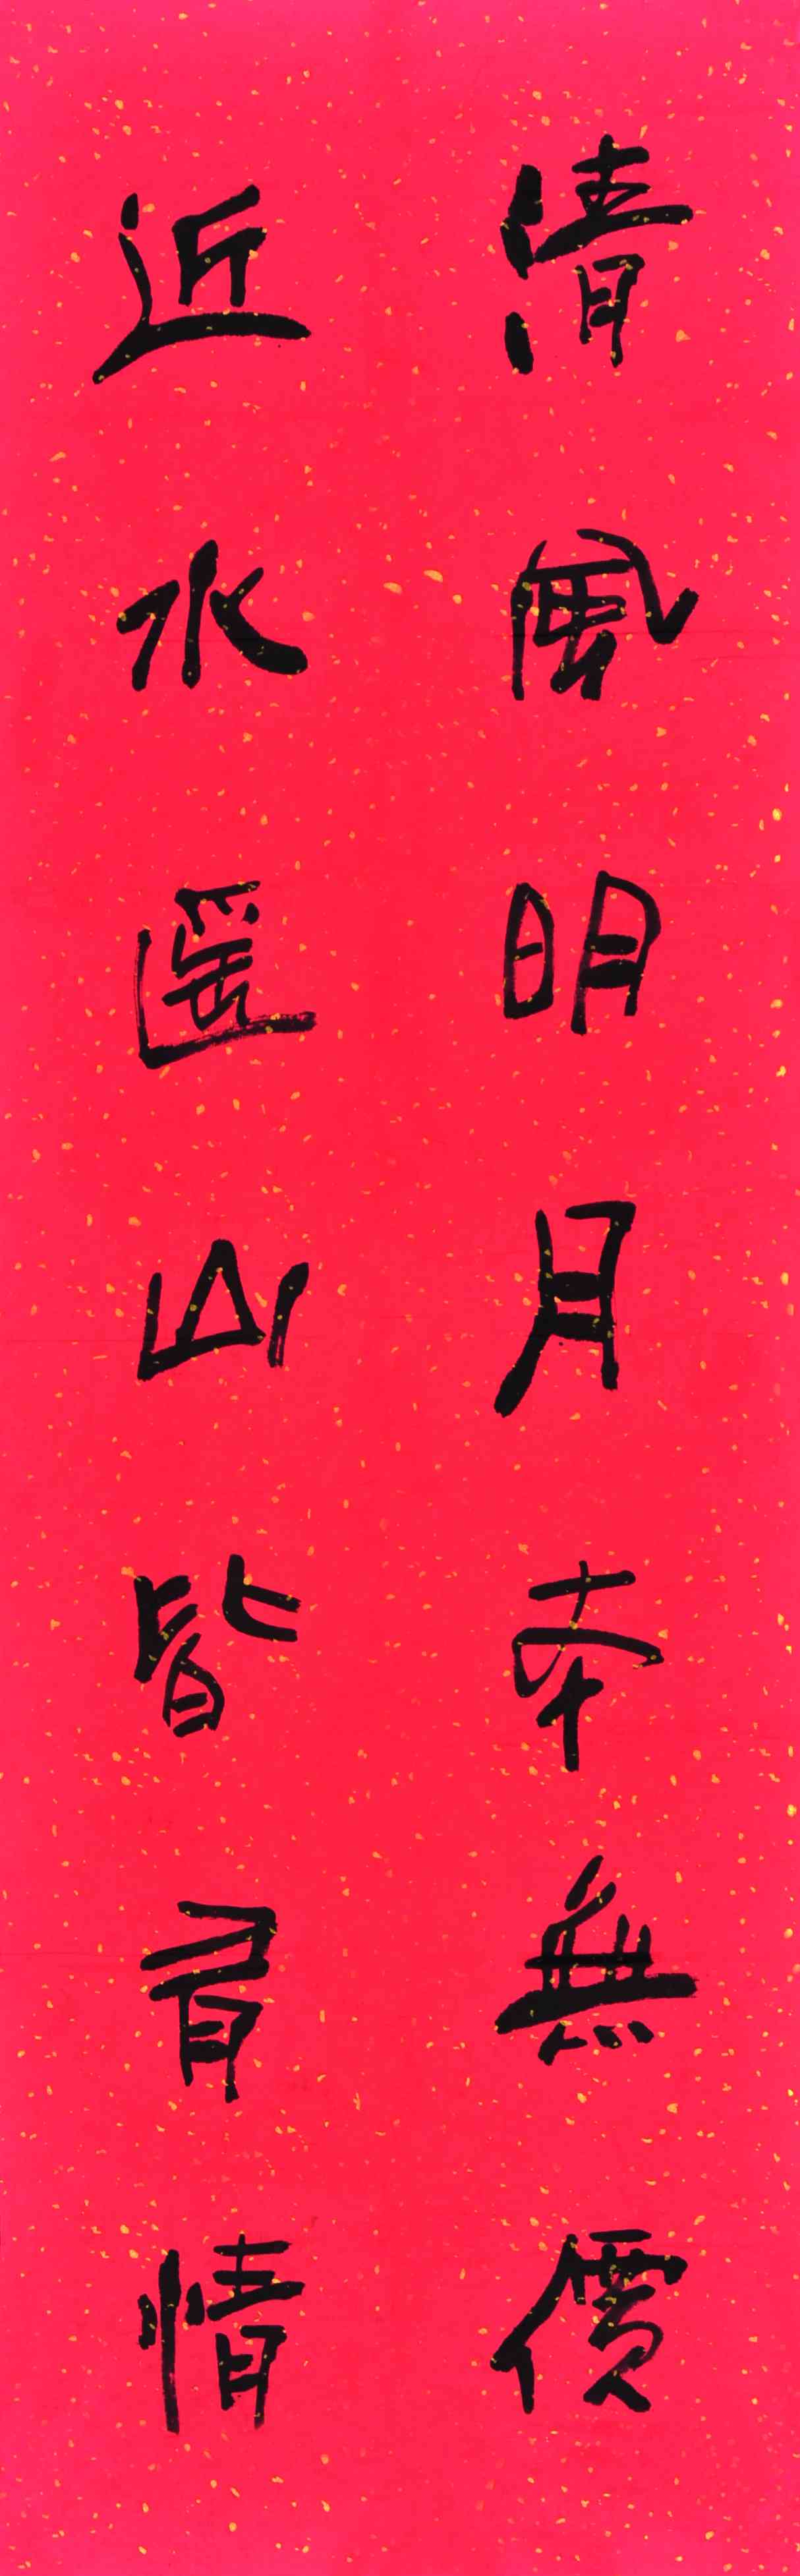 清風明月本無價
近水遥山皆有情